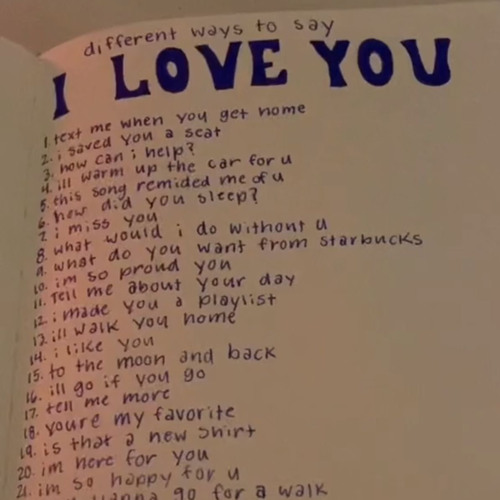 different ways to say
I LOVE YOU
1. text me when you get home
2. i saved you a seat
3. how can i help?
4. ill warm up the car for u
5. this song remided me of u
6. how did you sleep?
7. i miss you
8. what would i do without u
9. what do you want from starbucks
10. im so proud you
11. Tell me about your day
12. i made you a playlist
13. ill walk you home
14. i like you
15. to the moon and back
16. ill go if you go
17. tell me more
18. youre my favorite
19. is that a new shirt
20. im here for you
21. im so happy for u
go for a walk